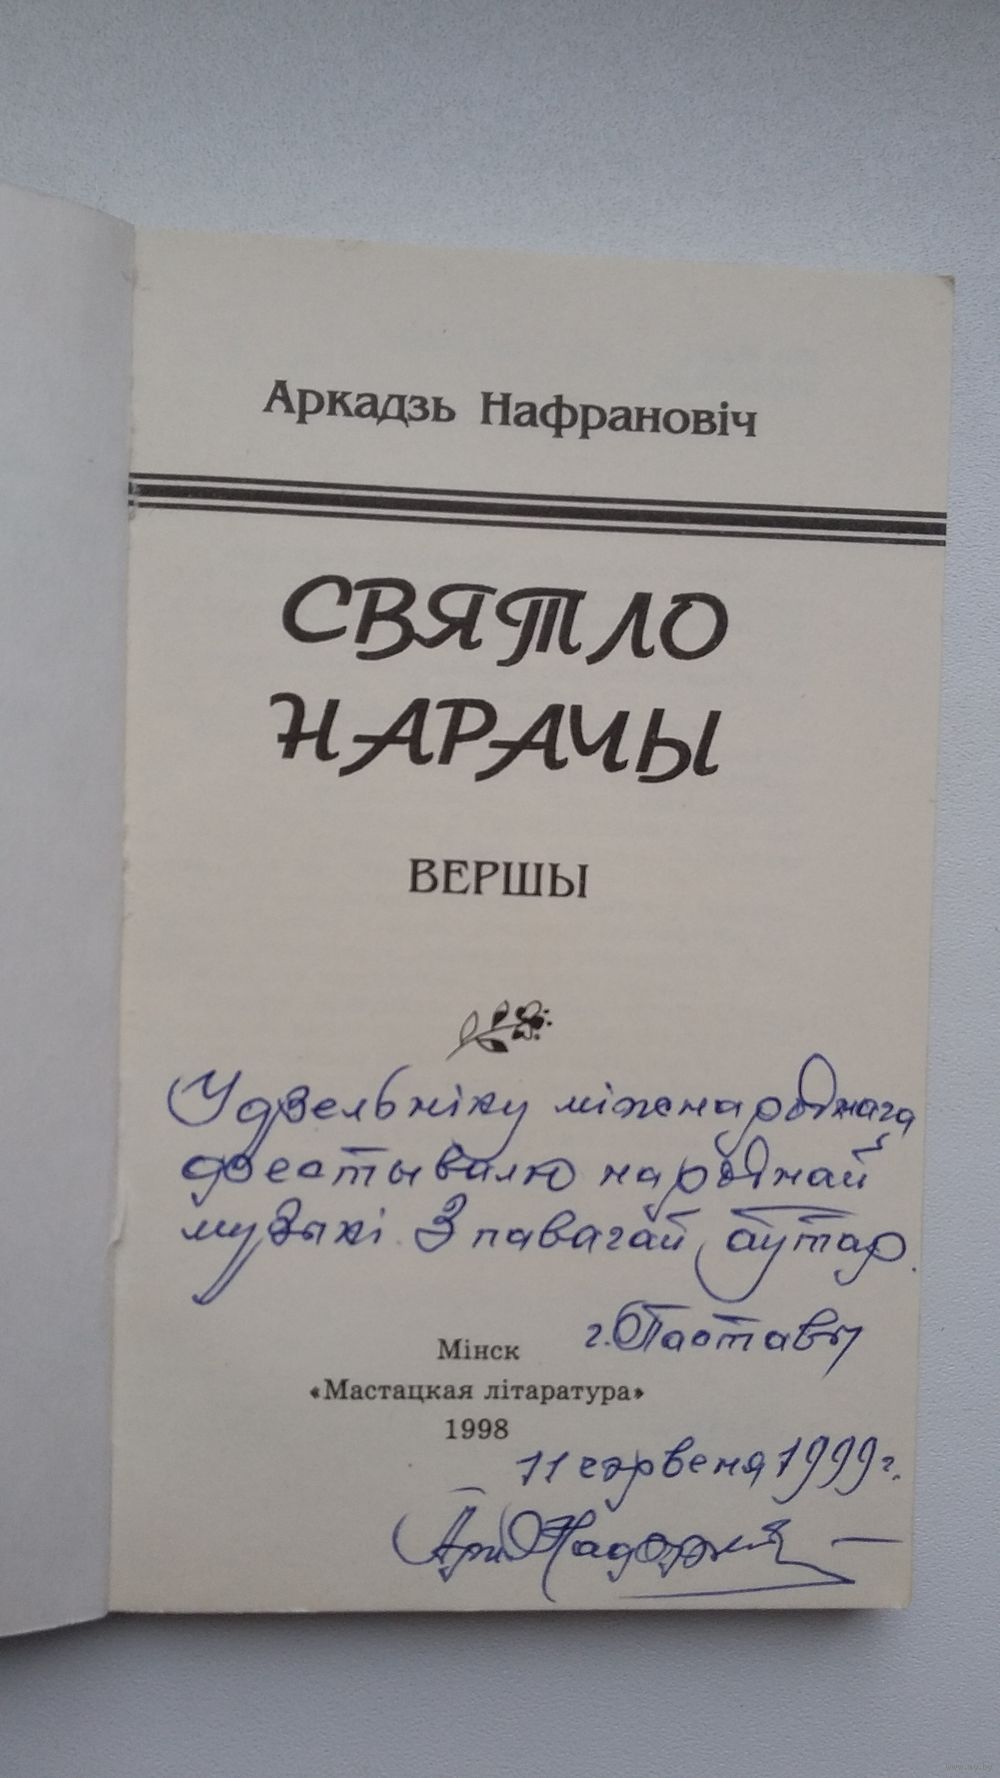 Аркадзь Нафрановіч
СВЯТЛО
НАРАЧЫ
ВЕРШЫ
Удзельніку міжнароднага
фестывалю народнай
музыкі. З павагай аўтар.
г. Паставы
Мінск
«Мастацкая літаратура»
1998
11 чэрвеня 1999 г.
www.ay.by